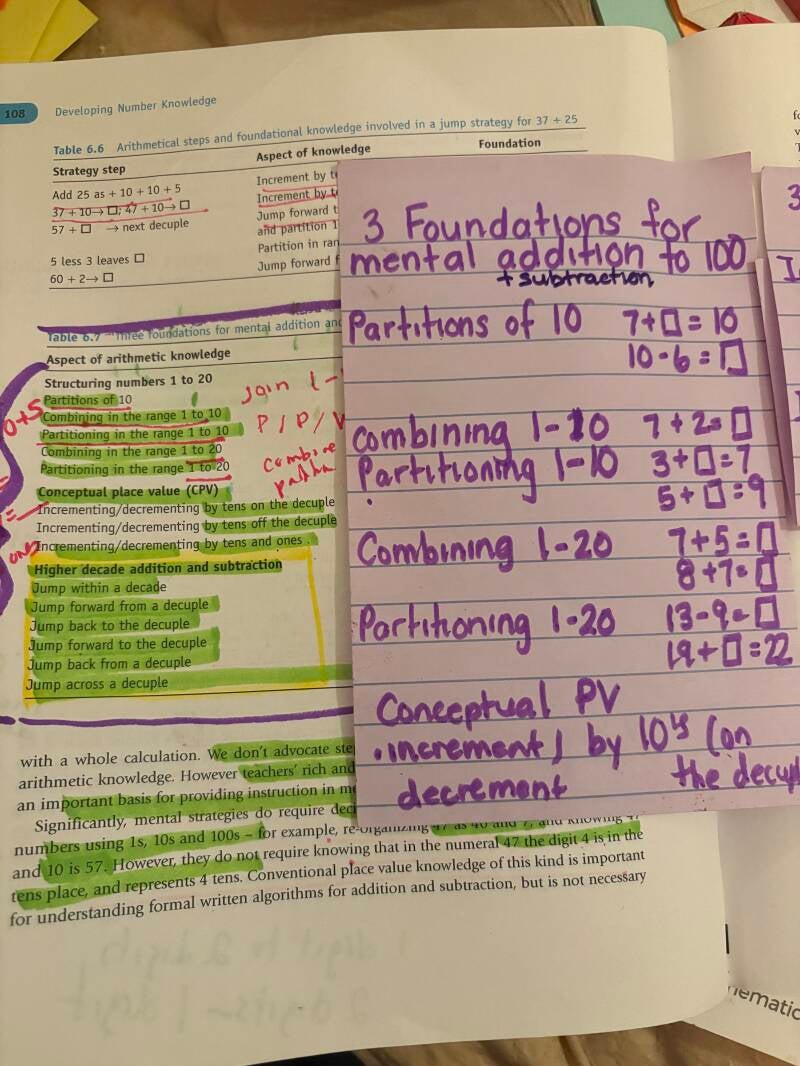 108
Developing Number Knowledge
Table 6.6 Arithmetical steps and foundational knowledge involved in a jump strategy for 37 + 25
Strategy step Aspect of knowledge Foundation
Add 25 as + 10 + 10 + 5 Increment by t
37 + 10→ □; 47 + 10→ □ Increment by t
57 + □ → next decuple Jump forward t
and partition 1
5 less 3 leaves □ Partition in ran
60 + 2→ □ Jump forward f
Table 6.7 Three foundations for mental addition and
Aspect of arithmetic knowledge
Structuring numbers 1 to 20
Partitions of 10
Combining in the range 1 to 10
Partitioning in the range 1 to 10
Combining in the range 1 to 20
Partitioning in the range 1 to 20
Conceptual place value (CPV)
Incrementing/decrementing by tens on the decuple
Incrementing/decrementing by tens off the decuple
Incrementing/decrementing by tens and ones
Higher decade addition and subtraction
Jump within a decade
Jump forward from a decuple
Jump back to the decuple
Jump forward to the decuple
Jump back from a decuple
Jump across a decuple
Join 1-
P / P / V
Combine
3 Foundations for
mental addition to 100
+ subtraction
Partitions of 10 7+□ = 10
10-6 = □
Combining 1-10 7+2=□
Partitioning 1-10 3+□=7
5+□=9
Combining 1-20 7+5=□
8+7=□
Partitioning 1-20 13-9=□
19+□=22
Conceptual PV
• increment by 10's (on
decrement the decupl
with a whole calculation. We don't advocate ste
arithmetic knowledge. However teachers' rich and
an important basis for providing instruction in me
Significantly, mental strategies do require deci
numbers using 1s, 10s and 100s – for example, re-organizing 47 as 40 and 7, and knowing 47
and 10 is 57. However, they do not require knowing that in the numeral 47 the digit 4 is in the
tens place, and represents 4 tens. Conventional place value knowledge of this kind is important
for understanding formal written algorithms for addition and subtraction, but is not necessary
3
ematic